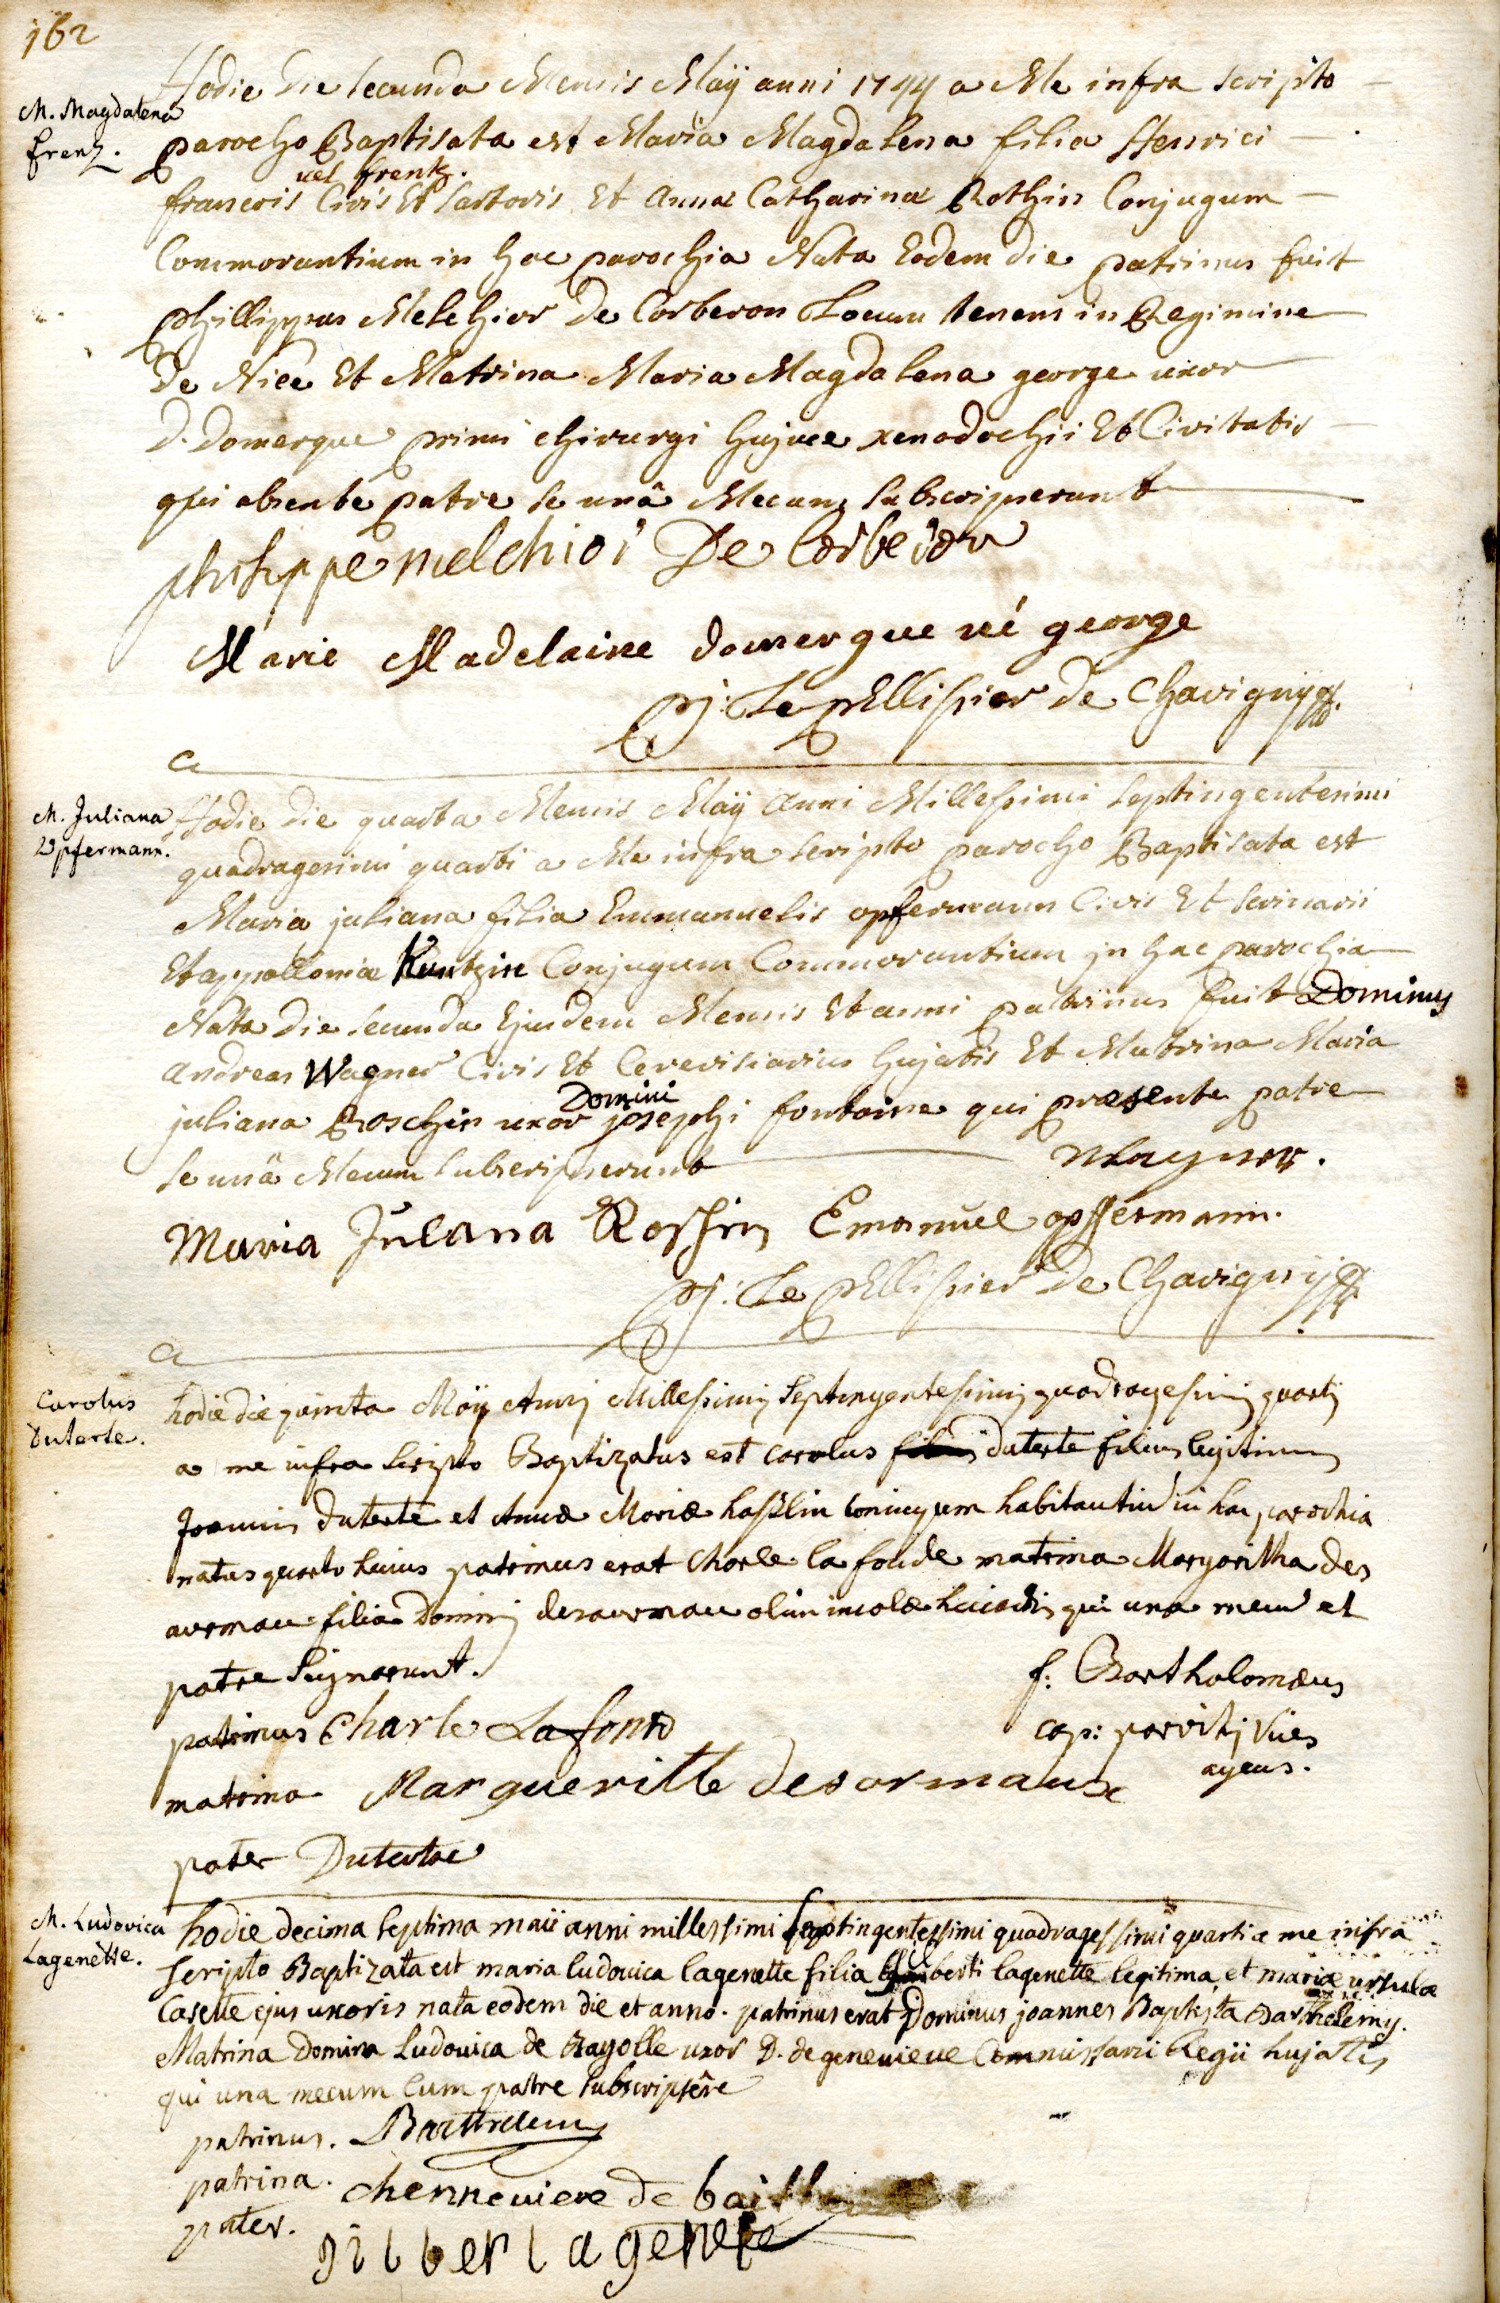 162
M. Magdalena
frenz.
Hodie die secunda Mensis Maÿ anni 1744 a Me infra scripto
parocho Baptisata est Maria Magdalena filia Henrici
vel frentz.
franceis Civis Et sartoris Et Annæ Catharinæ Rothin Conjugum
Commorantium in hac parochia Nata Eodem die patrinus fuit
phillippus Melchior De Corberon Locum tenens in Regimine
De Nice Et Matrina Maria Magdalena george uxor
D. Domergue primi chirurgi hujuce xenodochii Et Civitatis
qui absente patre se unâ Mecum subscripserunt
philippe melchior De Corberon
Marie Madelaine domergue né george
pj: Le pEllissier de Chavigny
M. Juliana
Opfermann.
Hodie die quarta Mensis Maÿ Anni Millessimi septingentesimi
quadragesimi quarti a Me infra scripto parocho Baptisata est
Maria juliana filia Emmanuelis opfermann Civis Et scrinarii
Et appolloniæ Kuntzin Conjugum Commorantium jn hac parochia
Nata Die secunda Ejusdem Mensis Et anni patrinus fuit Dominus
Andreas Wagner Civis Et Cerevisiarius hujatis Et Matrina Maria
Domini
juliana Roschin uxor josephi fontaine qui præsente patre
se unâ Mecum subscripserunt
Wagner.
Maria Julana Rossin Emanuel opffermann.
pj: Le pEllissier De Chavigny
Carolus
Duterte.
hodie die quinta Maÿ Annj Millesimj septingentesimj quadragesimj quartj
a me infra scripto Baptizatus est carolus duterte filius legitimus
Joannis duterte et Annæ Mariæ hasslin coniugum habitantiu in hac parochia
natus quarto huius patrinus erat Charle la fonde matrina Margaritha des
aurmau filia Dominj desaurmau olim incolæ huiatis qui una mecu et
patre signarunt.
f: Bartholomæus
cap: parochj vices
agens.
patrinus Charle Lafond
matrina Margueritte desormaux
pater Dutertre
M. Ludovica
Lagenette.
hodie decima septima maii anni millessimi septingentessimi quadragessimi quarti a me infra
scripto Baptizata est maria ludovica lagenette filia Guilberti lagenette legitima et mariæ ursulæ
Casette ejus uxoris nata eodem die et anno. patrinus erat Dominus joannes Baptista Barthelemy.
Matrina Domina Ludovica de Bayolle uxor D. de genevieve Commissarii Regii hujatis
qui una mecum cum patre subscripsêre
patrinus. Barthelemy
patrina. chenneviere de
pater. gilber lagenete